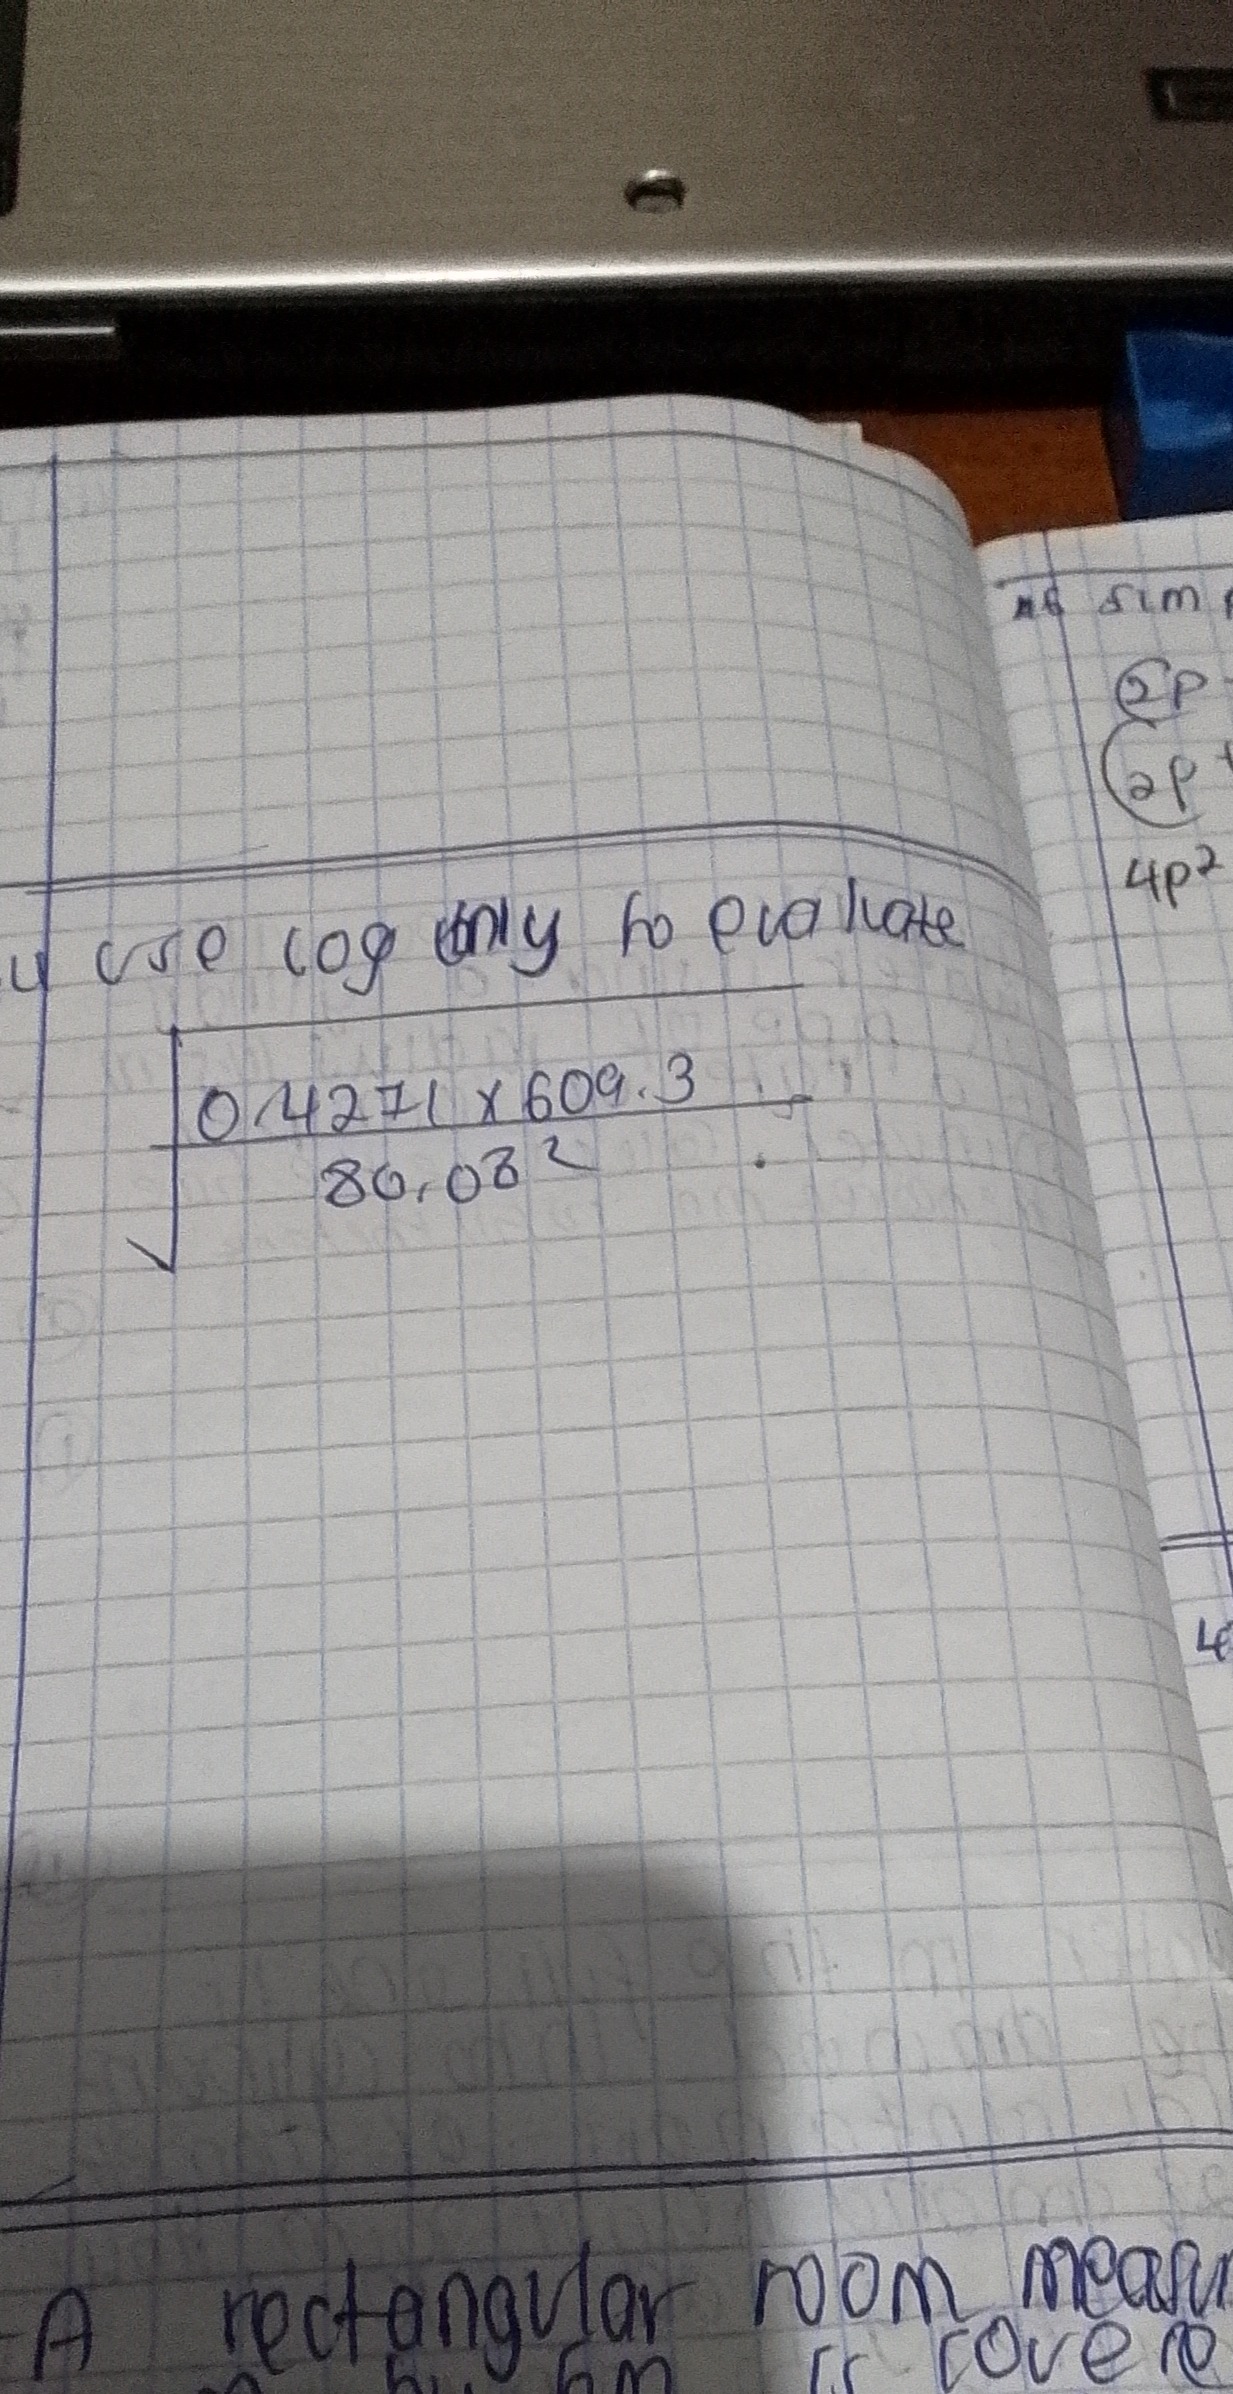 use log only to evaluate
√
0.4271 x 609.3
80.08²
sim
2p
(2p +
4p²
A rectangular room measur
by 6m is covere